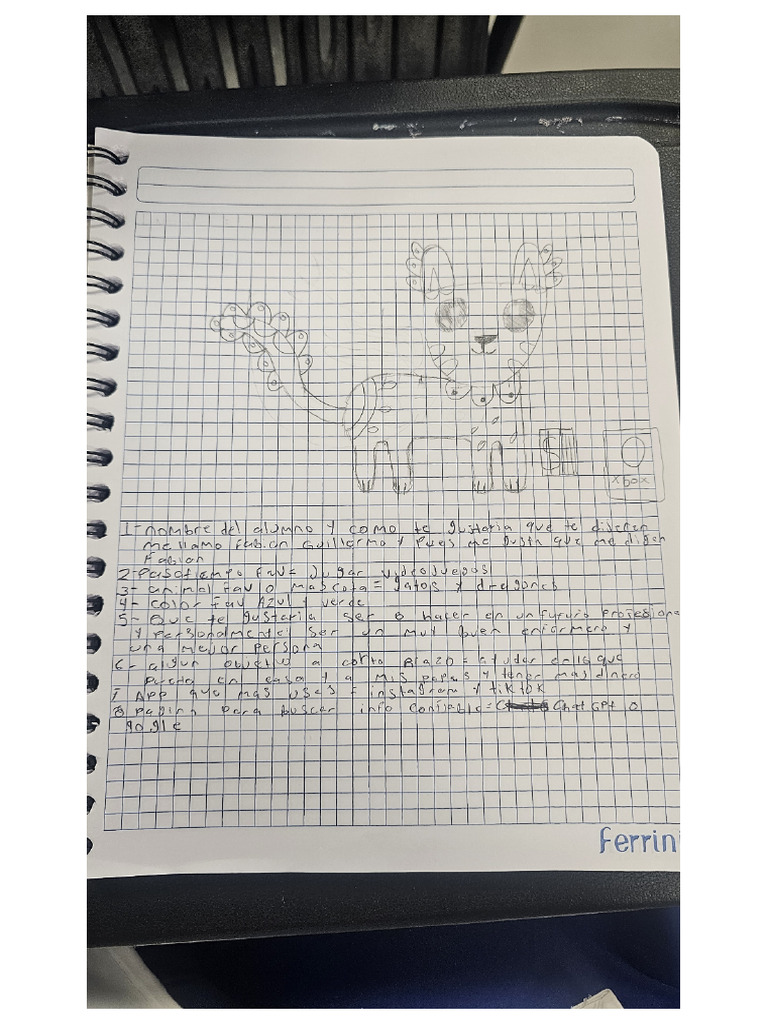 $
xbox
1- nombre del alumno y como te gustaria que te disecen
me llamo Fabian Guillermo y pues me gusta que me digan
Fabian
2- Pasatiempo Fav = Jugar videojuegos
3- animal Fav o mascota = gatos y dragones
4- color Fav Azul y verde
5- Que te gustaria ser o hacer en un futuro Profesiona
y personalmente ser un muy buen enfermero y
una mejor persona
6- algun objetivo a corto plazo = ayudar en lo que
pueda en casa y a mis papas y tener mas dinero
7 App que mas uses = instagram y tiktok
8 pagina para buscar info confiable = Chat GPT o
gogle
Ferrini